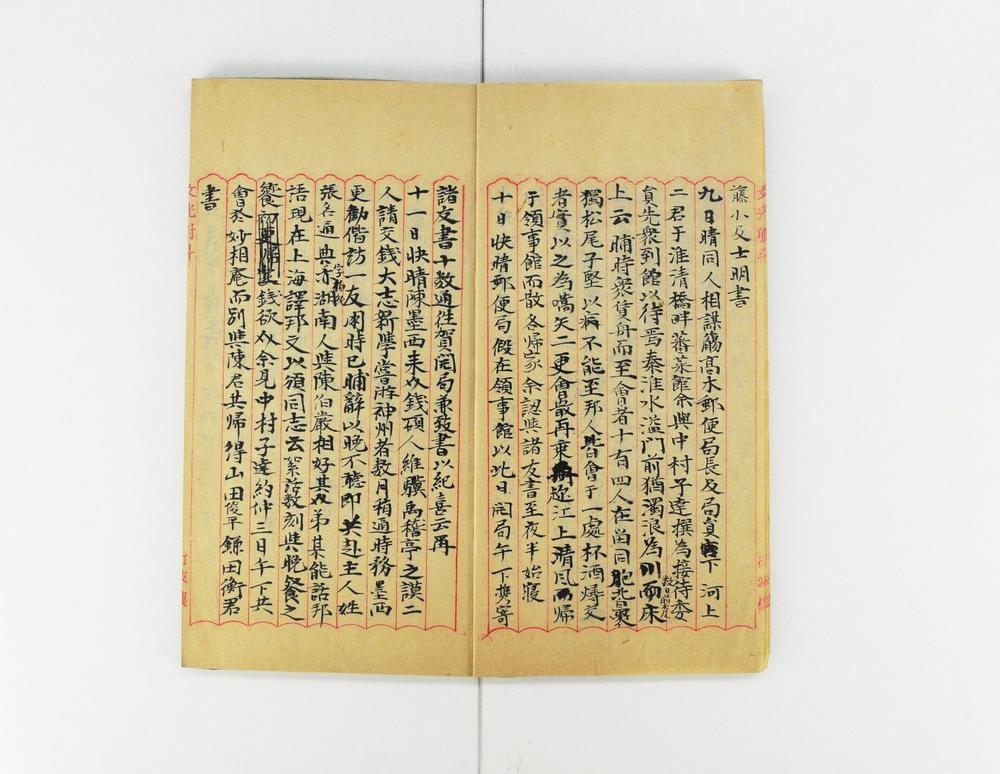 藤小友士明書
九日晴同人相謀觴高木郵便局長及局員宮下河上
二君于淮清橋畔蕃菜館余與中村子達撰為接待委
員先衆到館以待焉秦淮水溢門前猶濁浪為川而床
數日前
上云晡時衆賃舟而至會者十有四人在尚同胞
獨松尾子堅以病不能至邦人皆會于一處杯酒
者實以之為嚆矢二更會散再乗 江上清風而帰
于領事館而散各帰家余認與諸友書至夜半始寝
十日快晴郵便局假在領事館以此日開局午下携寄
諸友書十數通往賀開局兼致書以紀喜云再
十一日快晴陳墨西来 錢碩人維驥禹稽亭之謨二
人請交錢大志新學嘗游神州者數月稍通時務墨西
更勸偕訪一友用時已晡辭以晚不聴即共赴主人姓
張名通典 湖南人與陳伯嚴相好其 弟某能話邦
字
語現在上海譯邦文以須同志云 數刻與晩餐之
饗 錢欲 余見中村子達約仲三日午下共
會於妙相庵而別與陳君共帰得山田俊平鎌田衡君
書